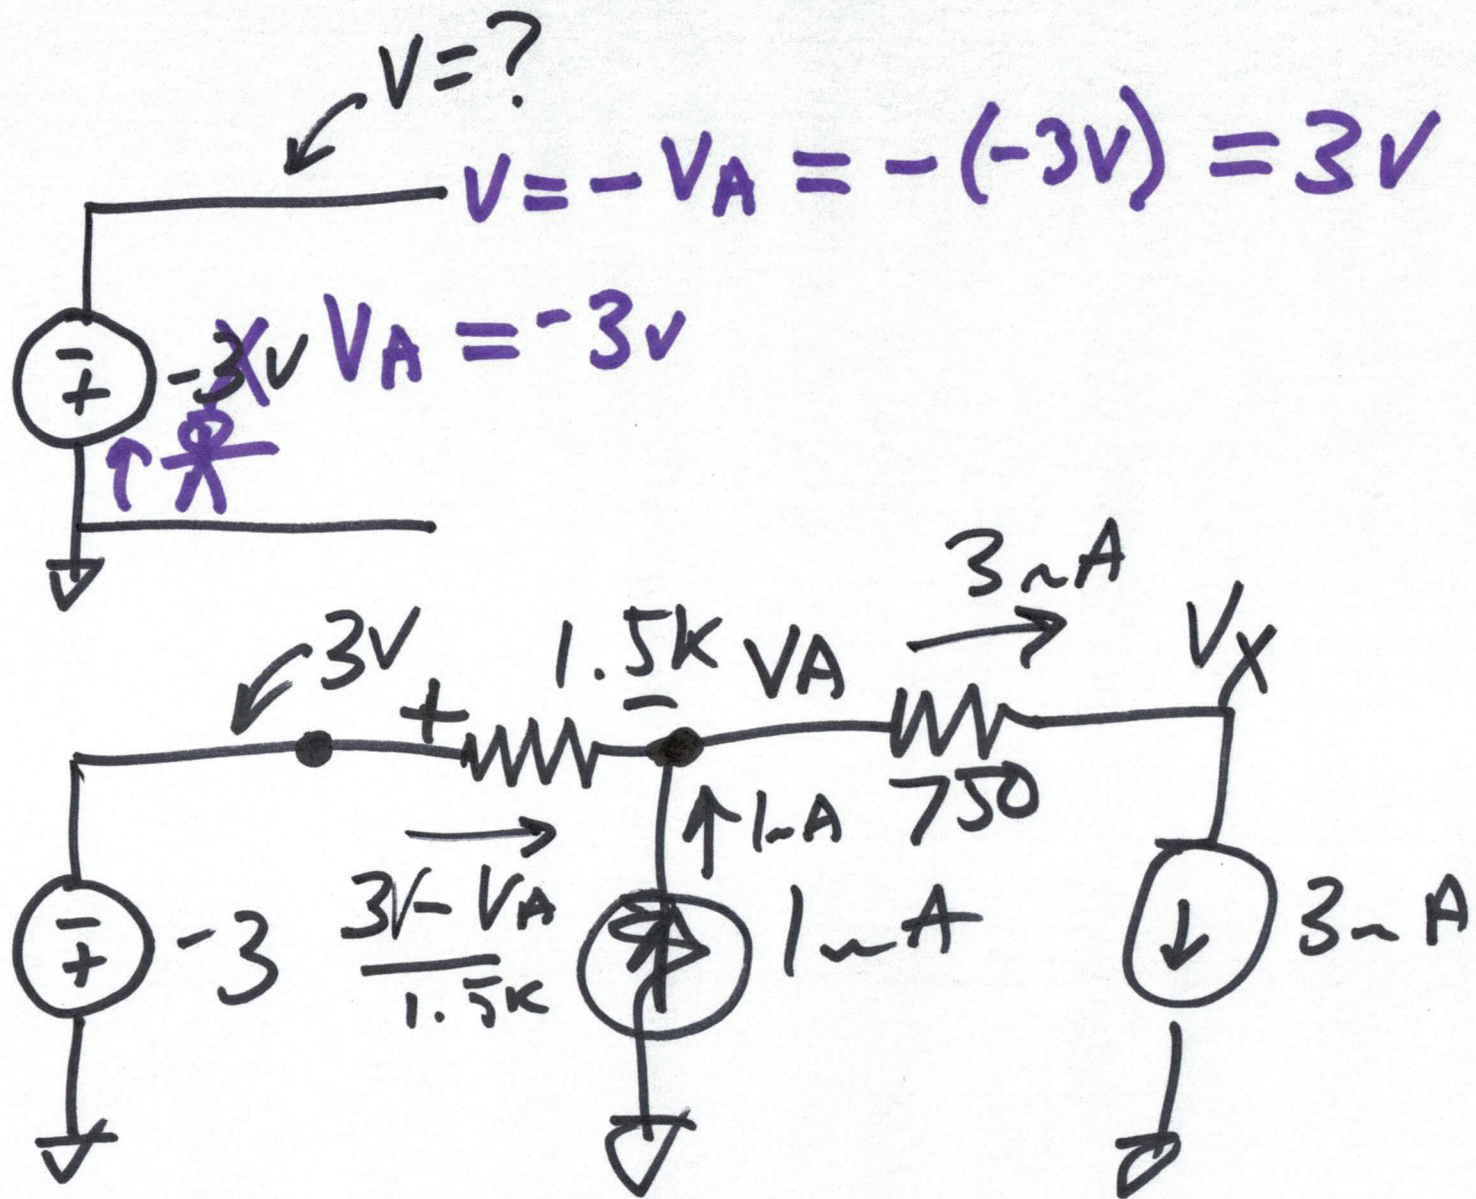 V=?
V = - VA = - (-3V) = 3V
-
+
-3V
VA = -3V
3mA
3V
+
1.5K
-
VA
VX
750
1mA
3V - VA
1.5K
-
+
-3
1mA
3mA